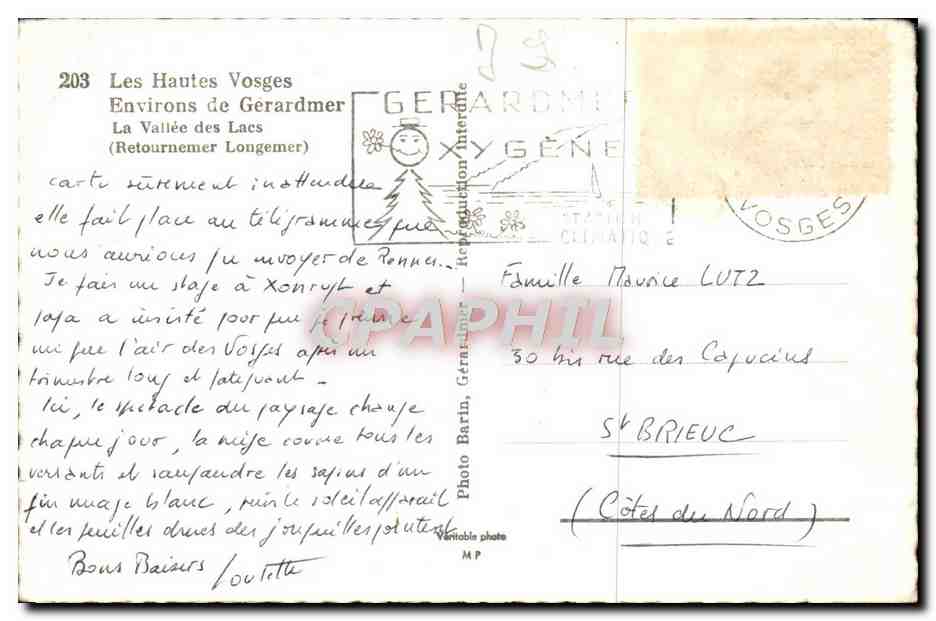 203 Les Hautes Vosges
Environs de Gérardmer
La Vallée des Lacs
(Retournemer Longemer)
GERARDME
OXYGÈNE
STATION
CLIMATIQUE
VOSGES
carte sûrement inattendue
elle fait place au télégramme que
nous aurions pu envoyer de Rennes...
Je fais un stage à Xonrupt et
papa a insisté pour que je prenne
un peu l'air des Vosges après un
trimestre long et fatiguant -
Ici, le spectacle du paysage change
chaque jour, la neige couvre tous les
versants et saupoudre les sapins d'un
fin nuage blanc, puis le soleil apparait
et les feuilles drues des jonquilles pointent
Bons Baisers
Photo Barin, Gérardmer — Reproduction interdite
Véritable photo
MP
Famille Maurice LUTZ
30 bis rue des Capucins
St BRIEUC
(Côtes du Nord)
CPAPHIL